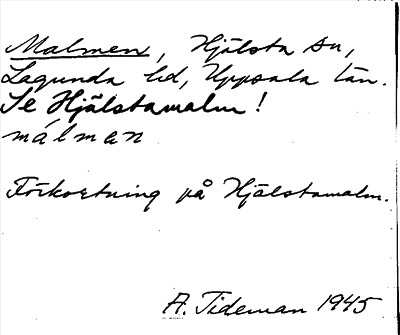 Malmen, Hjälsta sn,
Lagunda hd, Uppsala län.
Se Hjälstamalm!
málman
Förkortning på Hjälstamalm.
A. Tideman 1945